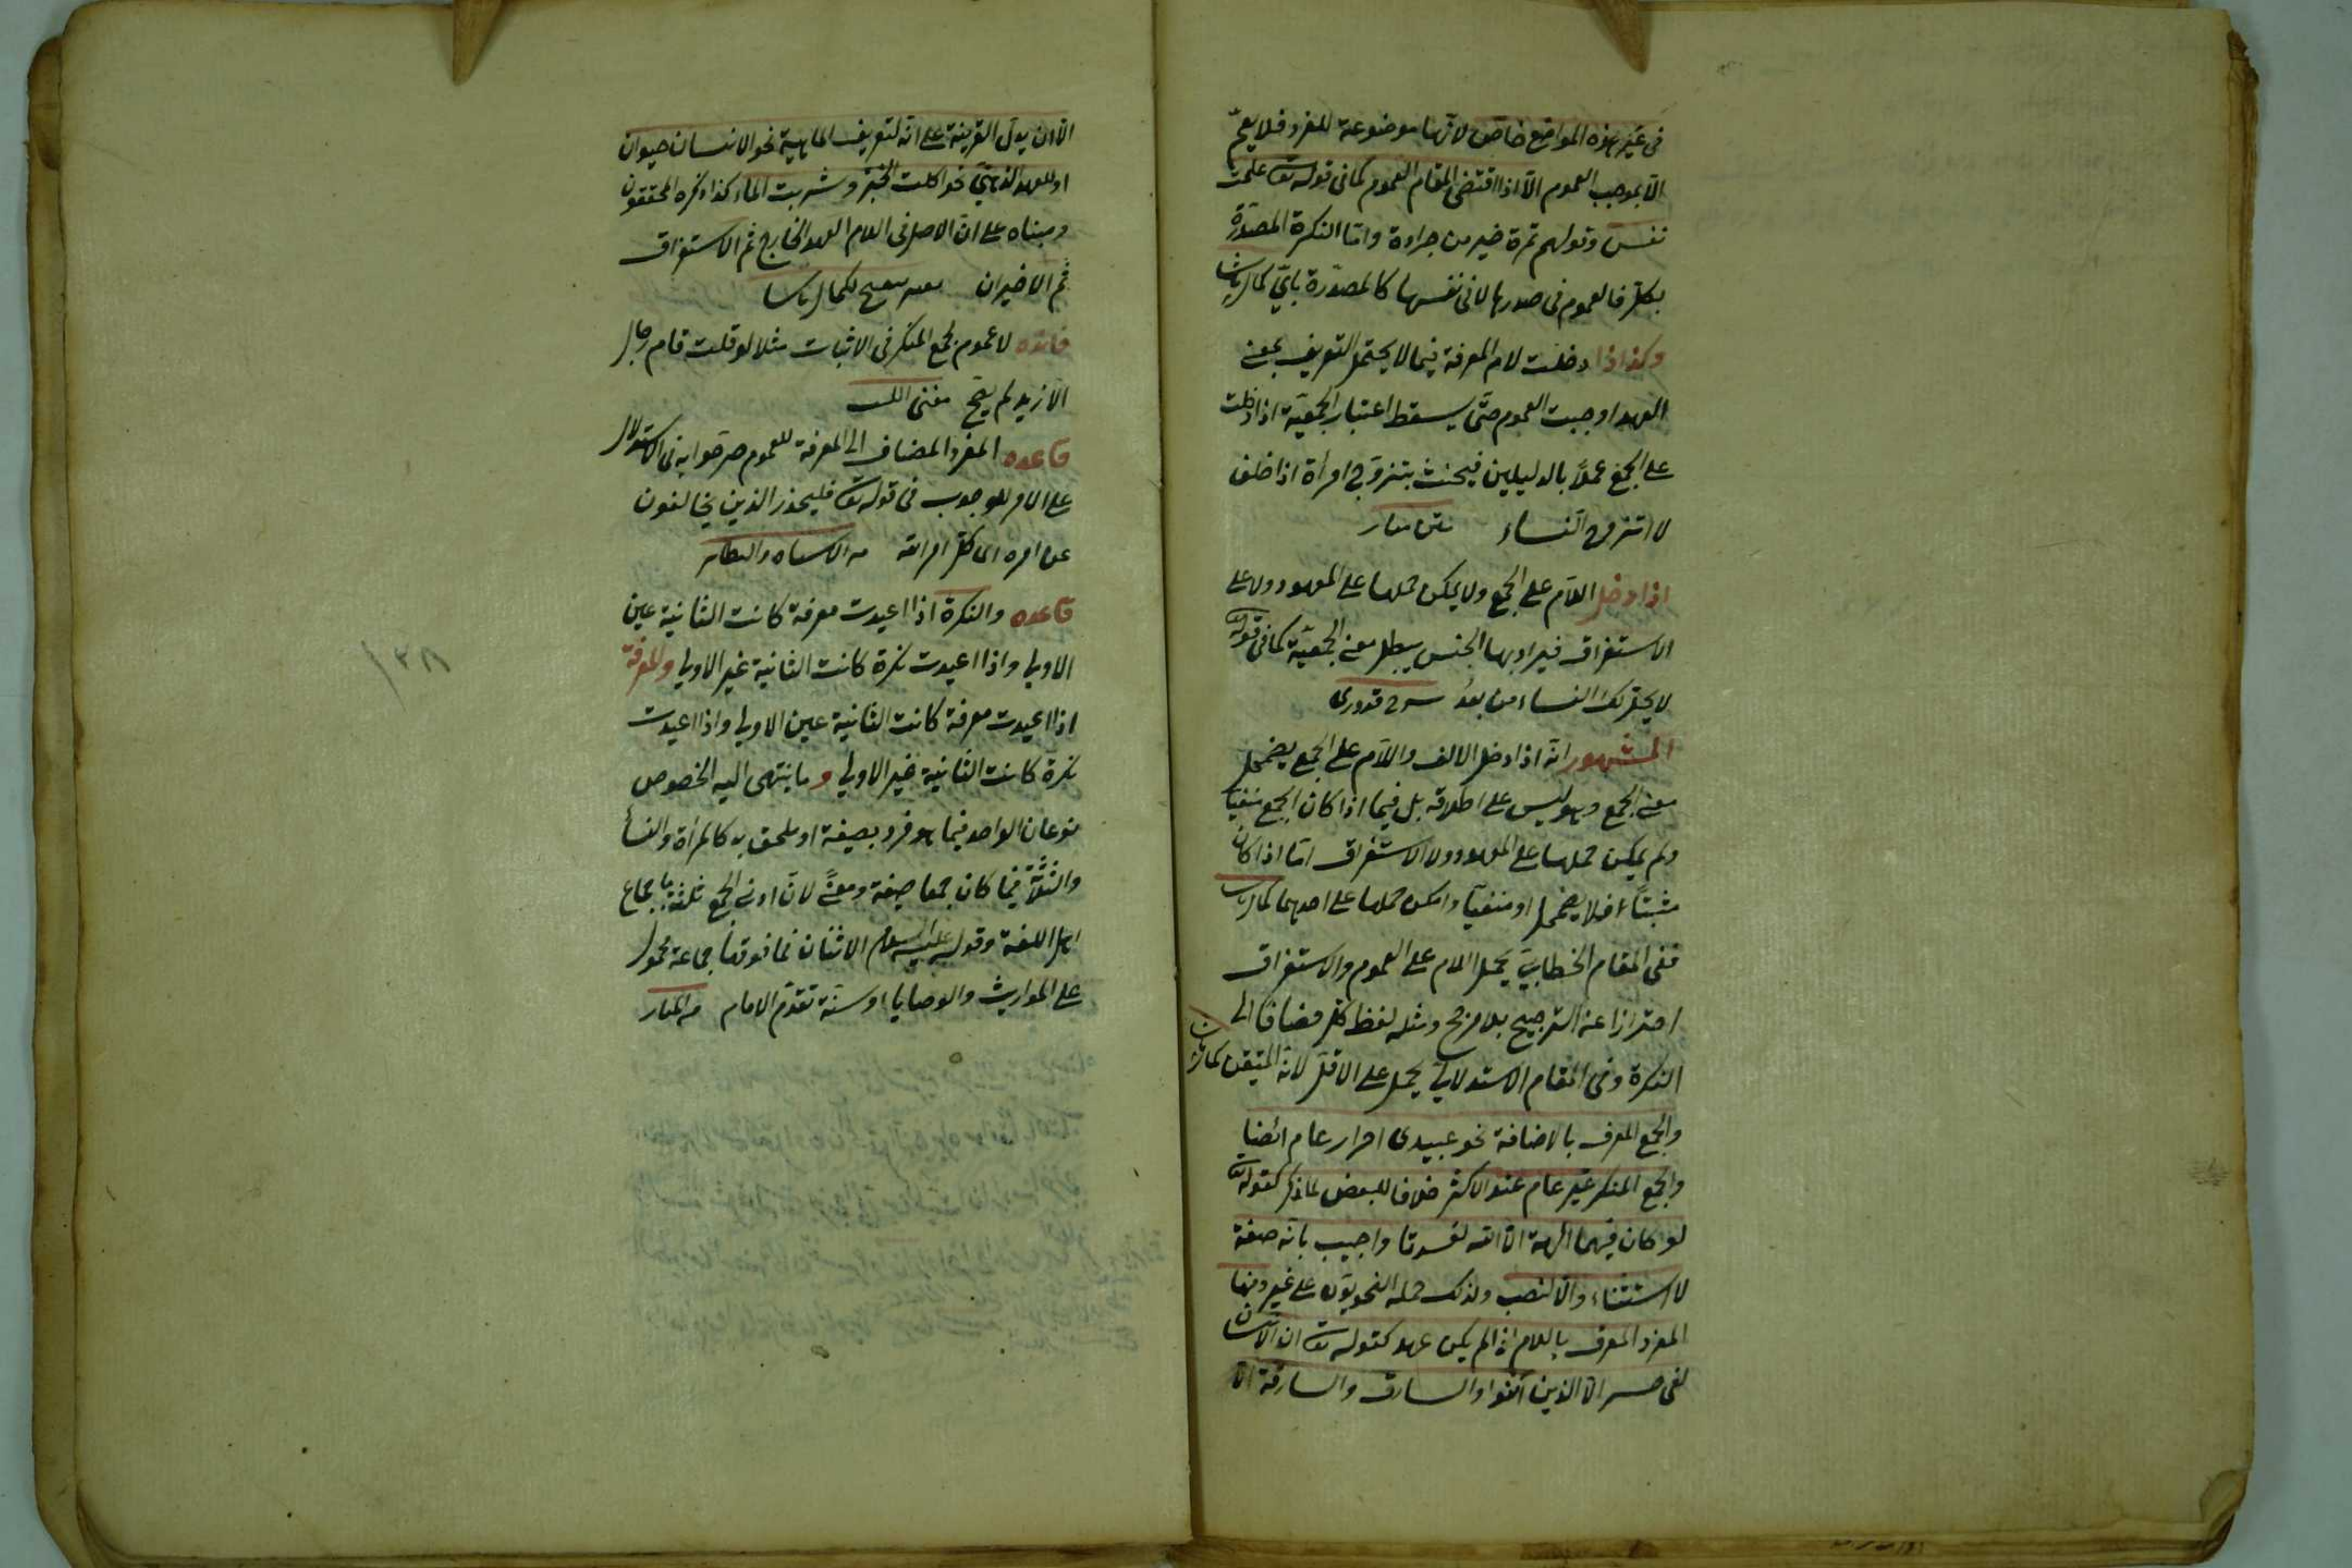 في غير هذه المواضع خاص لانها موضوعة للفرد فلا يعم
الا بموجب العموم الا اذا اقتضى المقام العموم كما في قوله تع علمت
نفس وقولهم تمرة خير من جرادة واما النكرة المصدرة
بكل فالعموم في صدرها لا في نفسها كالمصدرة باي كمال پاشا
وكذا اذا دخلت لام المعرفة فيما لا يحتمل التعريف بمعنى
العهد اوجبت العموم حتى يسقط اعتبار الجمعية اذا دخلت
على الجمع عملا بالدليلين فيحنث بتزوج امرأة اذا حلف
لا اتزوج النساء متن منار
اذا دخل اللام على الجمع ولا يمكن حملها على المعهود ولا على
الاستغراق فيراد بها الجنس يبطل معنى الجمعية كما في قوله تع
لا يحل لك النساء من بعد قدوري
المشهور انه اذا دخل الالف واللام على الجمع يضمحل
معنى الجمع وهو ليس على اطلاقه بل فيما اذا كان الجمع منفيا
ولم يمكن حملها على المعهود ولا الاستغراق اما اذا كان
مثبتا فلا يضمحل او منفيا وامكن حملها على احدهما كمال پاشا
ففي المقام الخطابي يحمل اللام على العموم والاستغراق
احترازا عن الترجيح بلا مرجح ومثله لفظ كل مضافا الى
النكرة وفي المقام الاستدلالي يحمل على الاقل لانه المتيقن كمال پاشا
والجمع المعرف بالاضافة نحو عبيدي احرار عام ايضا
والجمع المنكر غير عام عند الاكثر خلافا للبعض لما ذكر كقوله تع
لو كان فيهما الهة الا الله لفسدتا واجيب بانه صفة
لا استثناء والا لنصب ولذلك حمله النحويون على غير ومنها
المفرد المعرف باللام اذا لم يكن عهد كقوله تع ان الانسان
لفي خسر الا الذين آمنوا والسارق والسارقة الا
الا ان يدل القرينة على انه لتعريف الماهية نحو الانسان حيوان
او للعهد الذهني نحو اكلت الخبز وشربت الماء كذا ذكره المحققون
ومبناه على ان الاصل في اللام العهد الخارجي ثم الاستغراق
ثم الاخيران لكمال پاشا
فائده لا عموم لجمع المنكر في الاثبات مثلا لو قلت قام رجال
الا زيد لم يصح مغني اللبيب
قاعده المفرد المضاف الى المعرفة للعموم صرحوا به في الاستدلال
على الامر للوجوب في قوله تع فليحذر الذين يخالفون
عن امره اى كل امر الله من الاشباه والنظائر
قاعده والنكرة اذا اعيدت معرفة كانت الثانية عين
الاولى واذا اعيدت نكرة كانت الثانية غير الاولى والمعرفة
اذا اعيدت معرفة كانت الثانية عين الاولى واذا اعيدت
نكرة كانت الثانية غير الاولى وما ينتهي اليه الخصوص
نوعان الواحد فيما هو فرد بصيغة او ملحق به كالمرأة والنسأ
والثلثة فيما كان جمعا صيغة ومعنى لان ادنى الجمع ثلثة باجماع
اهل اللغة وقوله عليه السلام الاثنان فما فوقها جماعة محمول
على المواريث والوصايا او سنة تقدم الامام من المنار
١٣٨